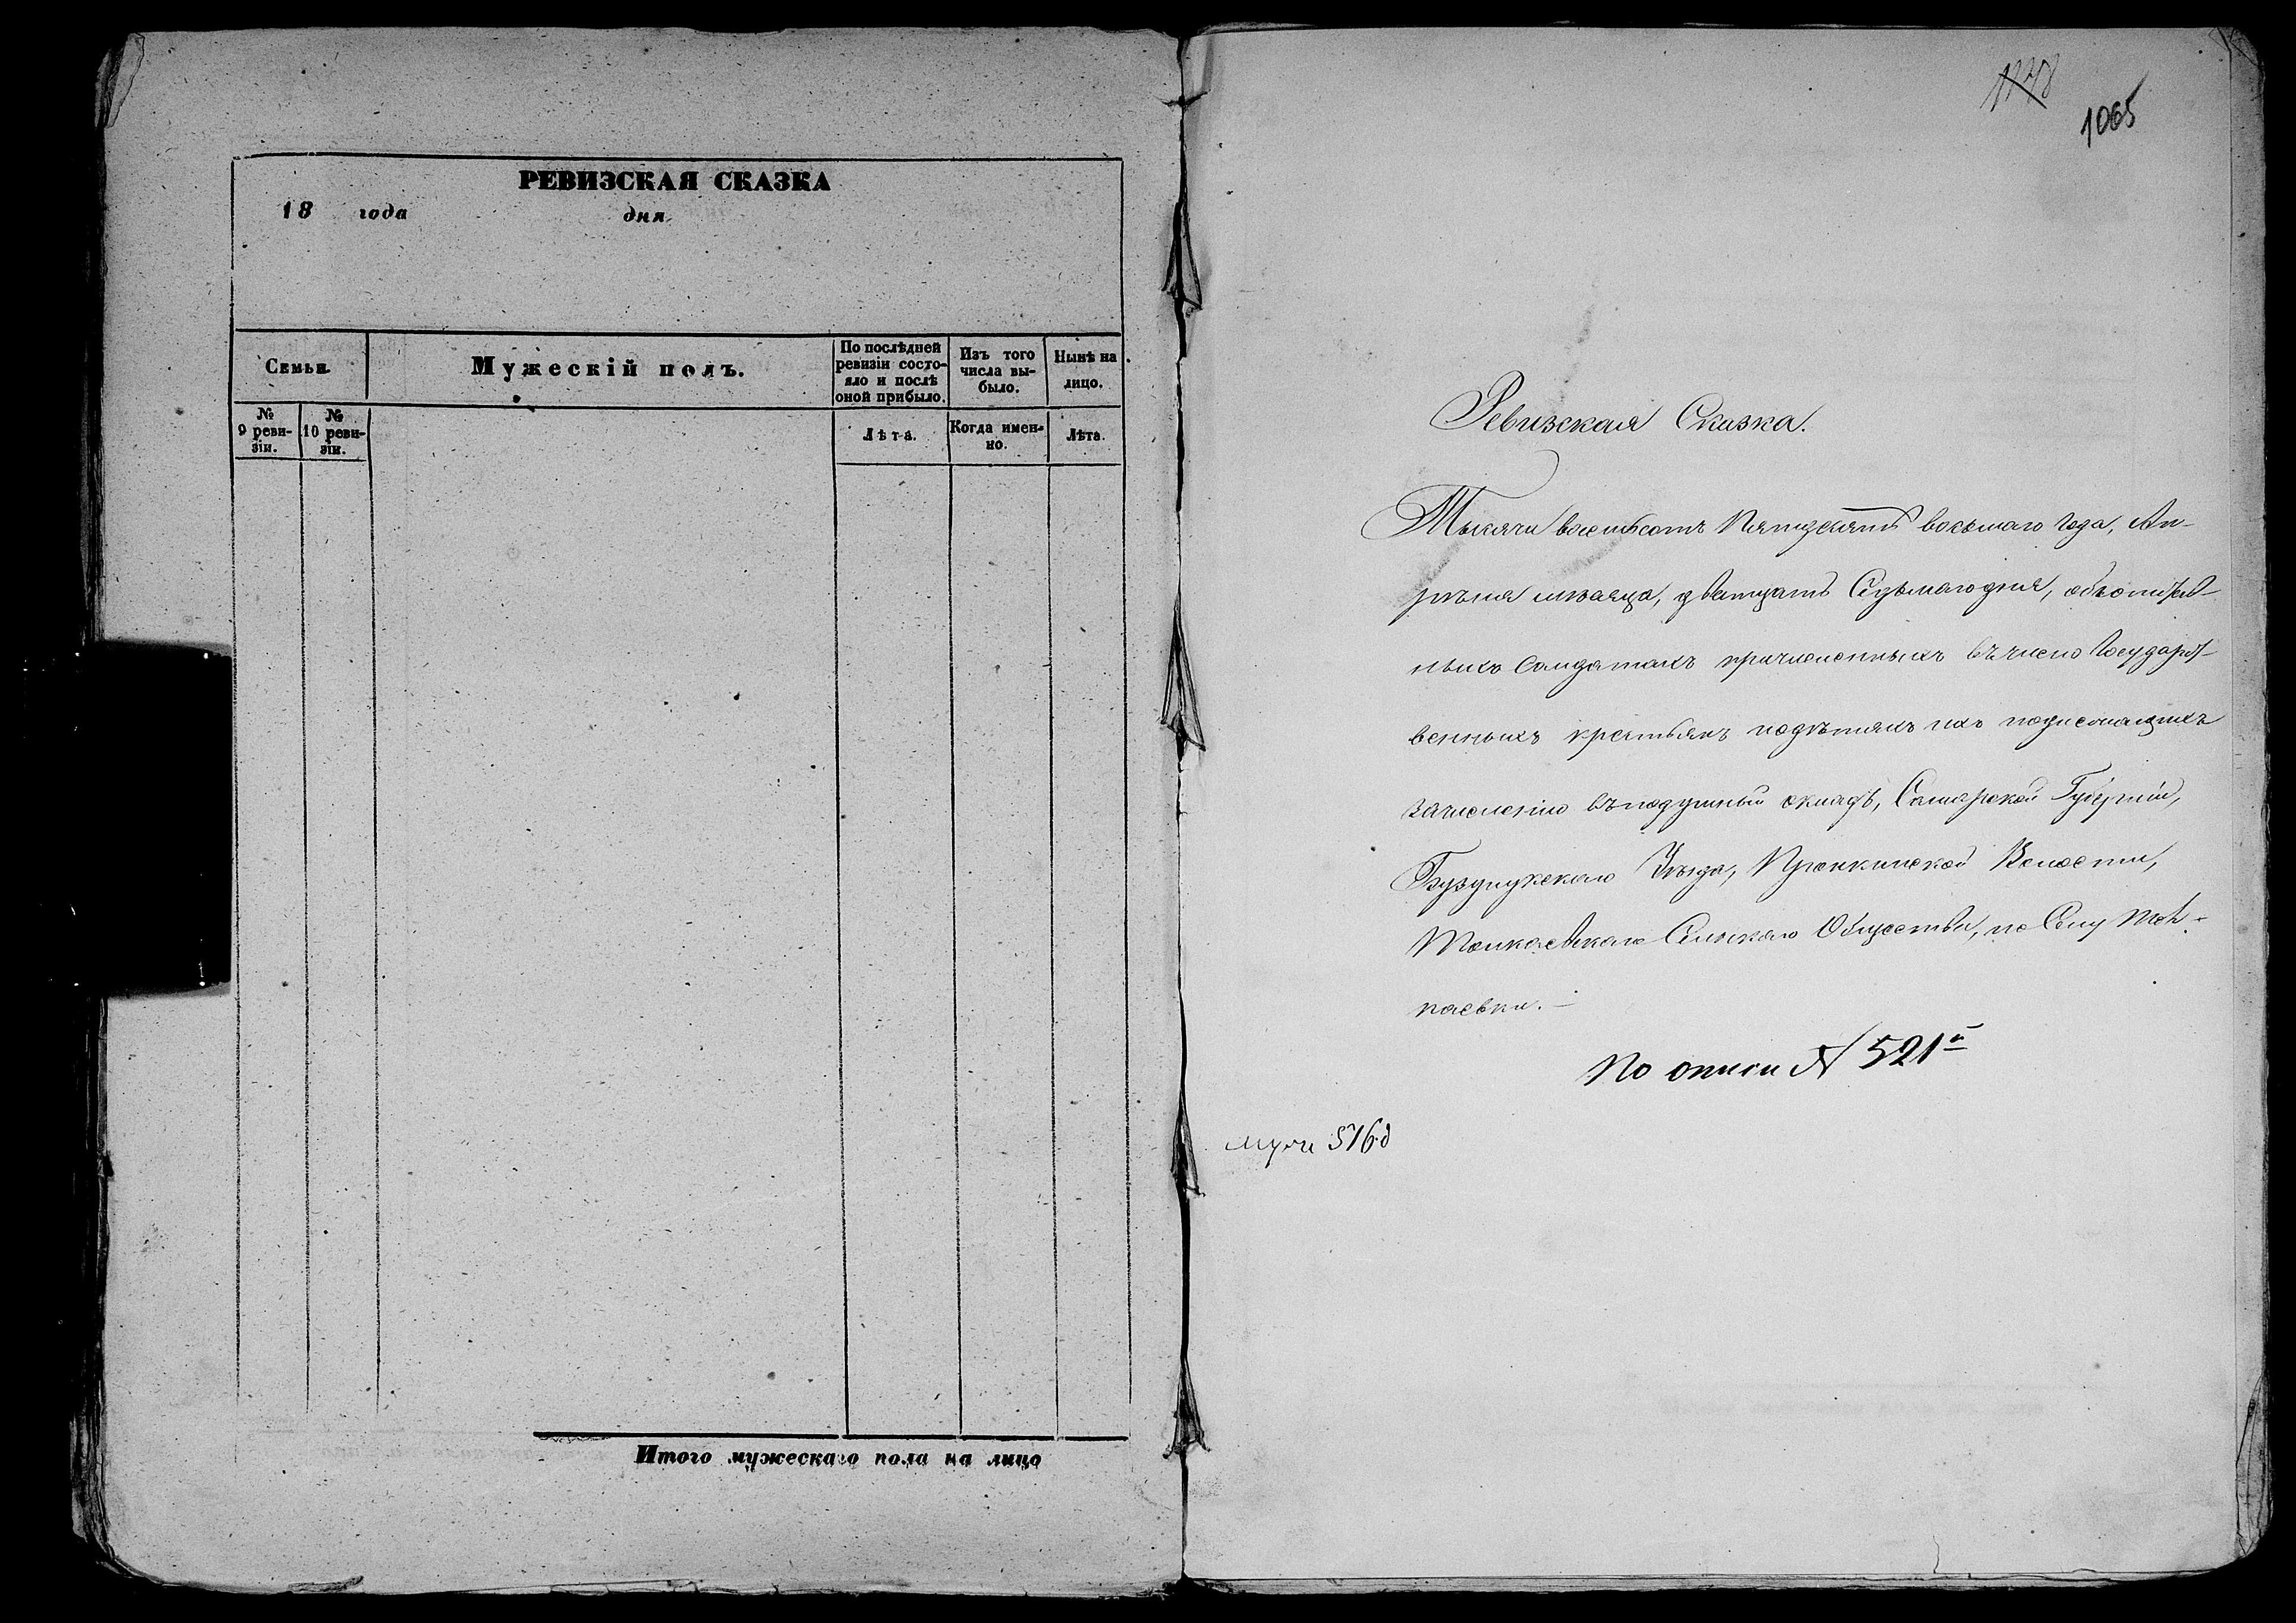 РЕВИЗСКАЯ СКАЗКА
18 года дня
Семьи.
Мужескій полъ.
По послѣдней
ревизіи состо-
яло и послѣ
оной прибыло.
Изъ того
числа вы-
было.
Нынѣ на
лицо.
№
9 реви-
зіи.
№
10 реви-
зіи.
Лѣта.
Когда имен-
но.
Лѣта.
Итого мужескаго пола на лицо
1065
Ревизская Сказка.
Тысяча восемьсотъ Пятьдесятъ восьмаго года, Ап-
рѣля мѣсяца, дватцать Седьмаго дня, объ отстав-
ныхъ Солдатахъ причисленныхъ въ число Государст-
венныхъ крестьянъ и о дѣтяхъ ихъ подлежащихъ
зачисленію въ подушный окладъ, Самарской Губерніи,
Бузулукскаго Уѣзда, Пронкинской Волости,
Толкаевскаго Сельскаго Общества, по Селу Тол-
каевки.
По описи № 521й